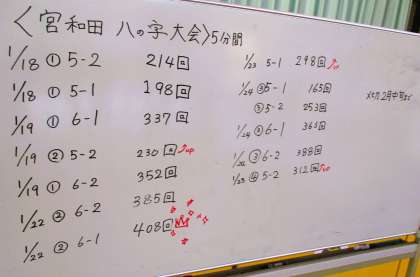 〈宮和田 八の字大会〉5分間
1/18 ① 5-2 214回
1/18 ① 5-1 198回
1/19 ① 6-1 337回
1/19 ② 5-2 230回 up
1/19 ① 6-2 352回
1/22 ② 6-2 385回
1/22 ② 6-1 408回
1/23 5-1 298回 up
1/24 ③ 5-1 165回
③ 5-2 253回
6-1 365回
③ 6-2 388回
④ 5-2 312回 up
2月中旬まで